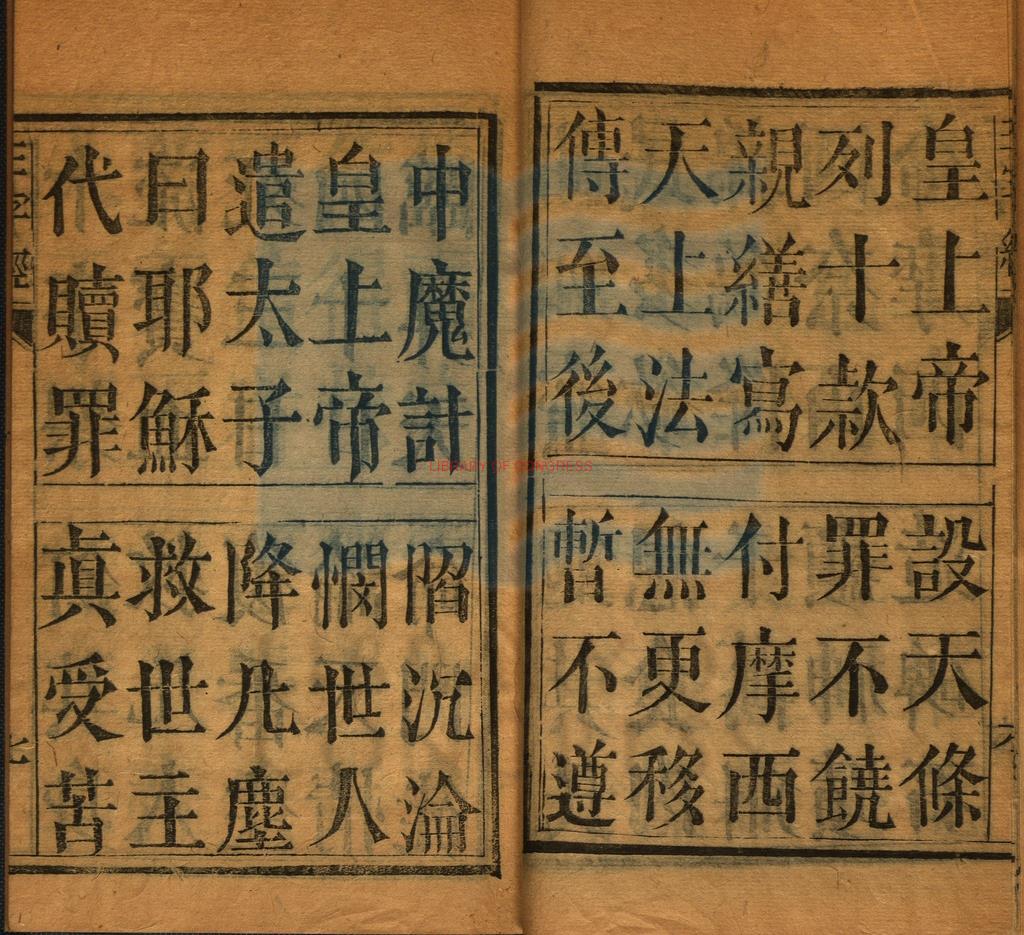 皇上帝 設天條
列十款 罪不饒
親繕寫 付摩西
天上法 無更移
傳至後 暫不遵
中魔計 陷沉淪
皇上帝 憫世人
遣太子 降凡塵
曰耶穌 救世主
代贖罪 眞受苦
三字經
LIBRARY OF CONGRESS